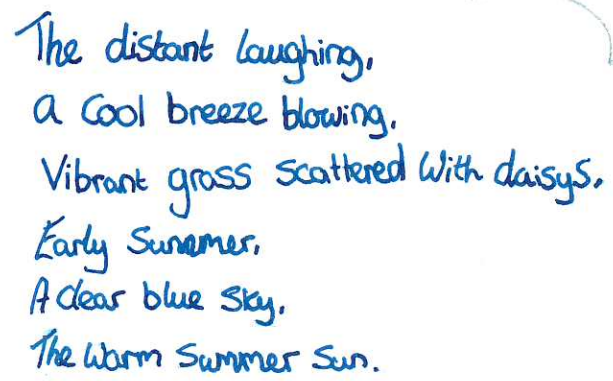 The distant laughing,
a cool breeze blowing,
Vibrant grass scattered With daisys,
Early Summer,
A clear blue Sky,
The Warm Summer Sun.